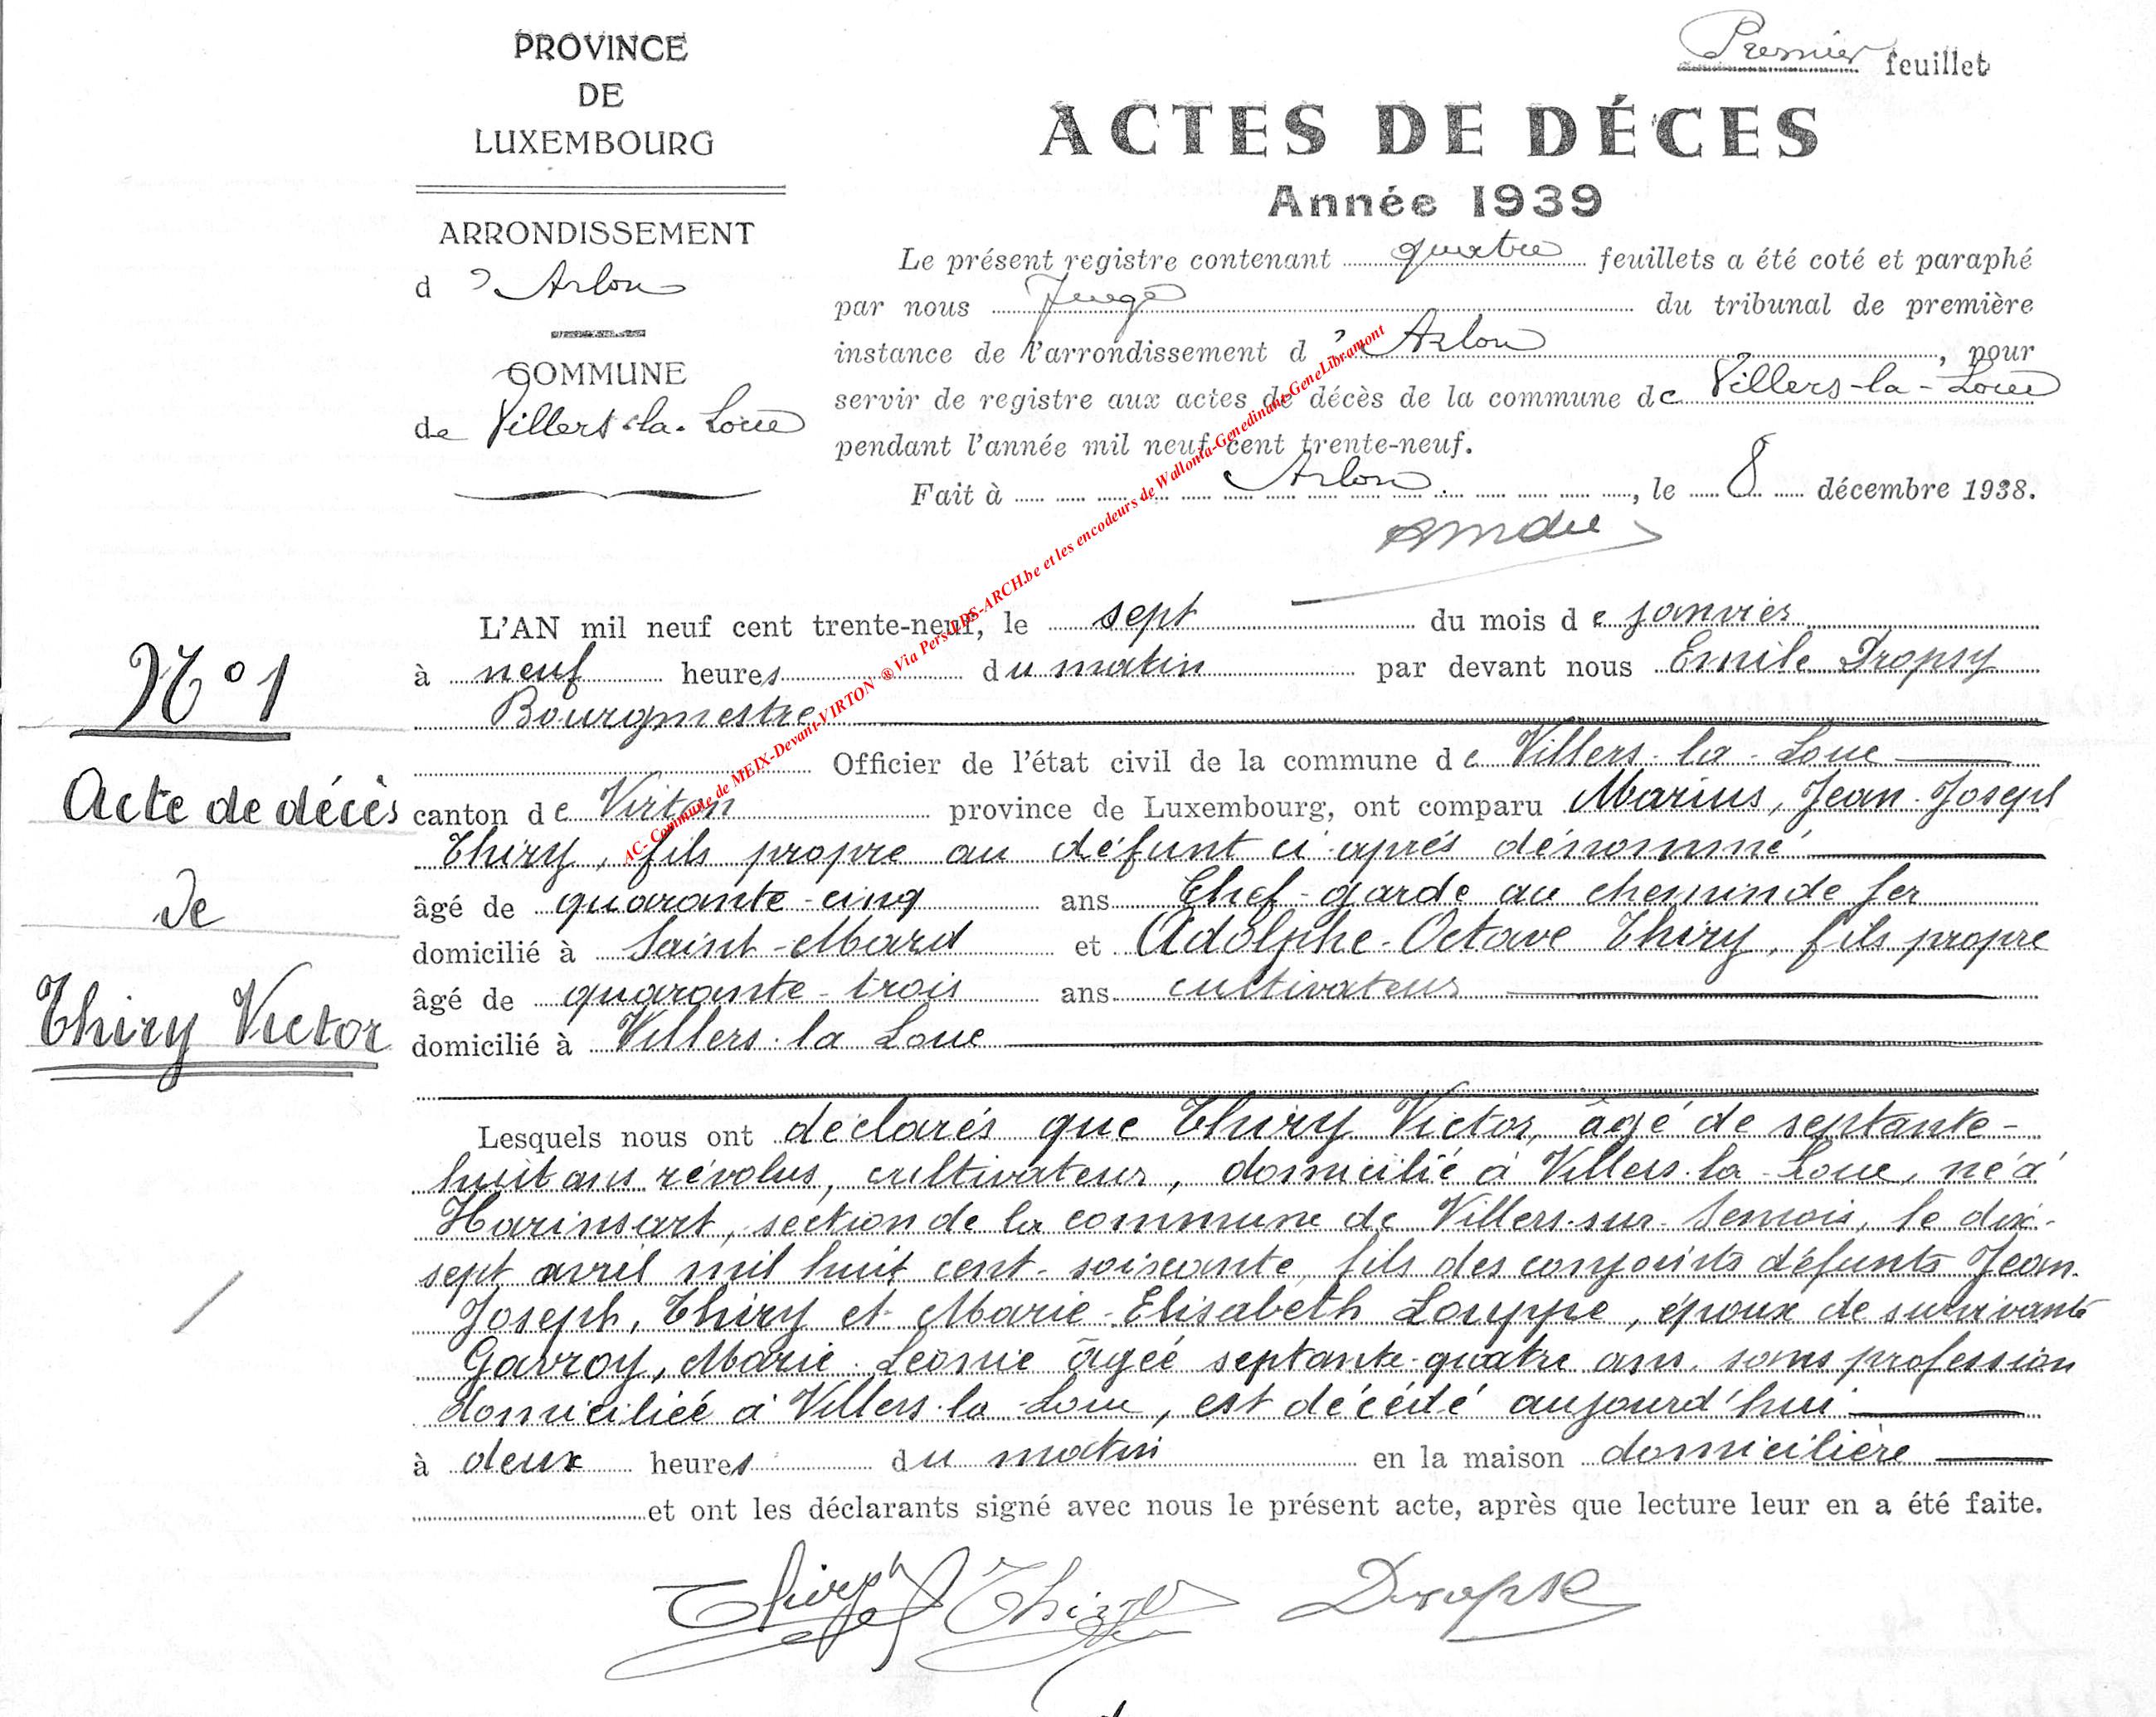 PROVINCE
DE
LUXEMBOURG
ARRONDISSEMENT
d'Arlon
COMMUNE
de Villers-la-Loue
Premier feuillet
ACTES DE DÉCES
Année 1939
Le présent registre contenant quatre feuillets a été coté et paraphé
par nous Juge du tribunal de première
instance de l'arrondissement d'Arlon, pour
servir de registre aux actes de décès de la commune de Villers-la-Loue
pendant l'année mil neuf cent trente-neuf.
Fait à Arlon, le 8 décembre 1938.
AC- Commune de MEIX-Devant-VIRTON ® Via Pers-LDS-ARCH.be et les encodeurs de Wallonia-Genedinant-GeneLibramont
N° 1
Acte de décès
de
Thiry Victor
L'AN mil neuf cent trente-neuf, le sept du mois de janvier
à neuf heures du matin par devant nous Emile Dropsy
Bourgmestre
Officier de l'état civil de la commune de Villers-la-Loue
canton de Virton province de Luxembourg, ont comparu Marius, Jean-Joseph
Thiry, fils propre au défunt ci-après dénommé
âgé de quarante-cinq ans Chef-garde au chemin de fer
domicilié à Saint-Mard et Adolphe-Octave Thiry, fils propre
âgé de quarante-trois ans cultivateur
domicilié à Villers-la-Loue
Lesquels nous ont déclarés que Thiry Victor, âgé de septante-
huit ans révolus, cultivateur, domicilié à Villers-la-Loue, né à
Harinsart, section de la commune de Villers-sur-Semois, le dix-
sept avril mil huit cent-soixante, fils des conjoints défunts Jean-
Joseph, Thiry et Marie-Elisabeth Louppe, époux de survivante
Gavroy, Marie-Léonie âgée septante-quatre ans, sans profession
domiciliée à Villers-la-Loue, est décédé aujourd'hui
à deux heures du matin en la maison domicilière
et ont les déclarants signé avec nous le présent acte, après que lecture leur en a été faite.
Thiry Thiry Dropsy